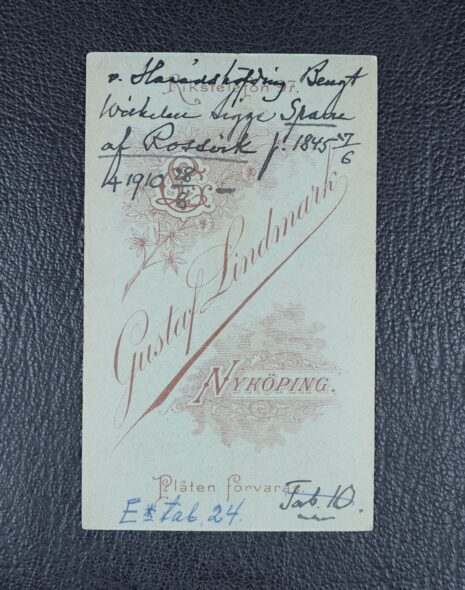 v. Häradshöfding Bengt
Rikstelefon 97.
Wilhelm Sigge Sparre
af Rossvik f. 1845 27/6
† 1910 28/8 —
Gustaf Lindmark
NYKÖPING.
Plåten förvaras.
Tab. 10.
E* tab. 24.